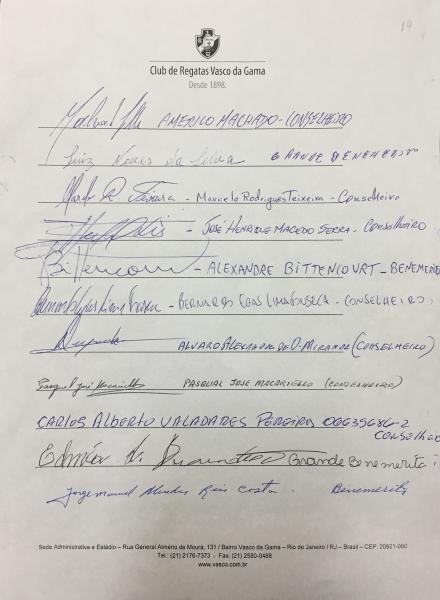 14
Club de Regatas Vasco da Gama
Desde 1898.
AMERICO MACHADO - CONSELHEIRO
Luiz Neves da Silva GRANDE BENEMERITO
Marcelo R. Teixeira - Marcelo Rodrigues Teixeira - Conselheiro
- JOSÉ HENRIQUE MACEDO SERRA - CONSELHEIRO
Bittencourt - ALEXANDRE BITTENCOURT - BENEMÉRI
- BERNARDO EGAS LIMA FONSECA - CONSELHEIRO
ALVARO ALEXANDRE DE O. MIRANDA (CONSELHEIRO)
PASQUAL JOSÉ MACARIELLO (CONSELHEIRO)
CARLOS ALBERTO VALADARES PEREIRA 06635686-2
CONSELHEI
Grande Benemerito
Jorge manuel Mendes Reis Costa. Benemerito
Sede Administrativa e Estádio – Rua General Almério de Moura, 131 / Bairro Vasco da Gama – Rio de Janeiro / RJ – Brasil – CEP: 20921-060
Tel.: (21) 2176-7373 - Fax: (21) 2580-0488
www.vasco.com.br